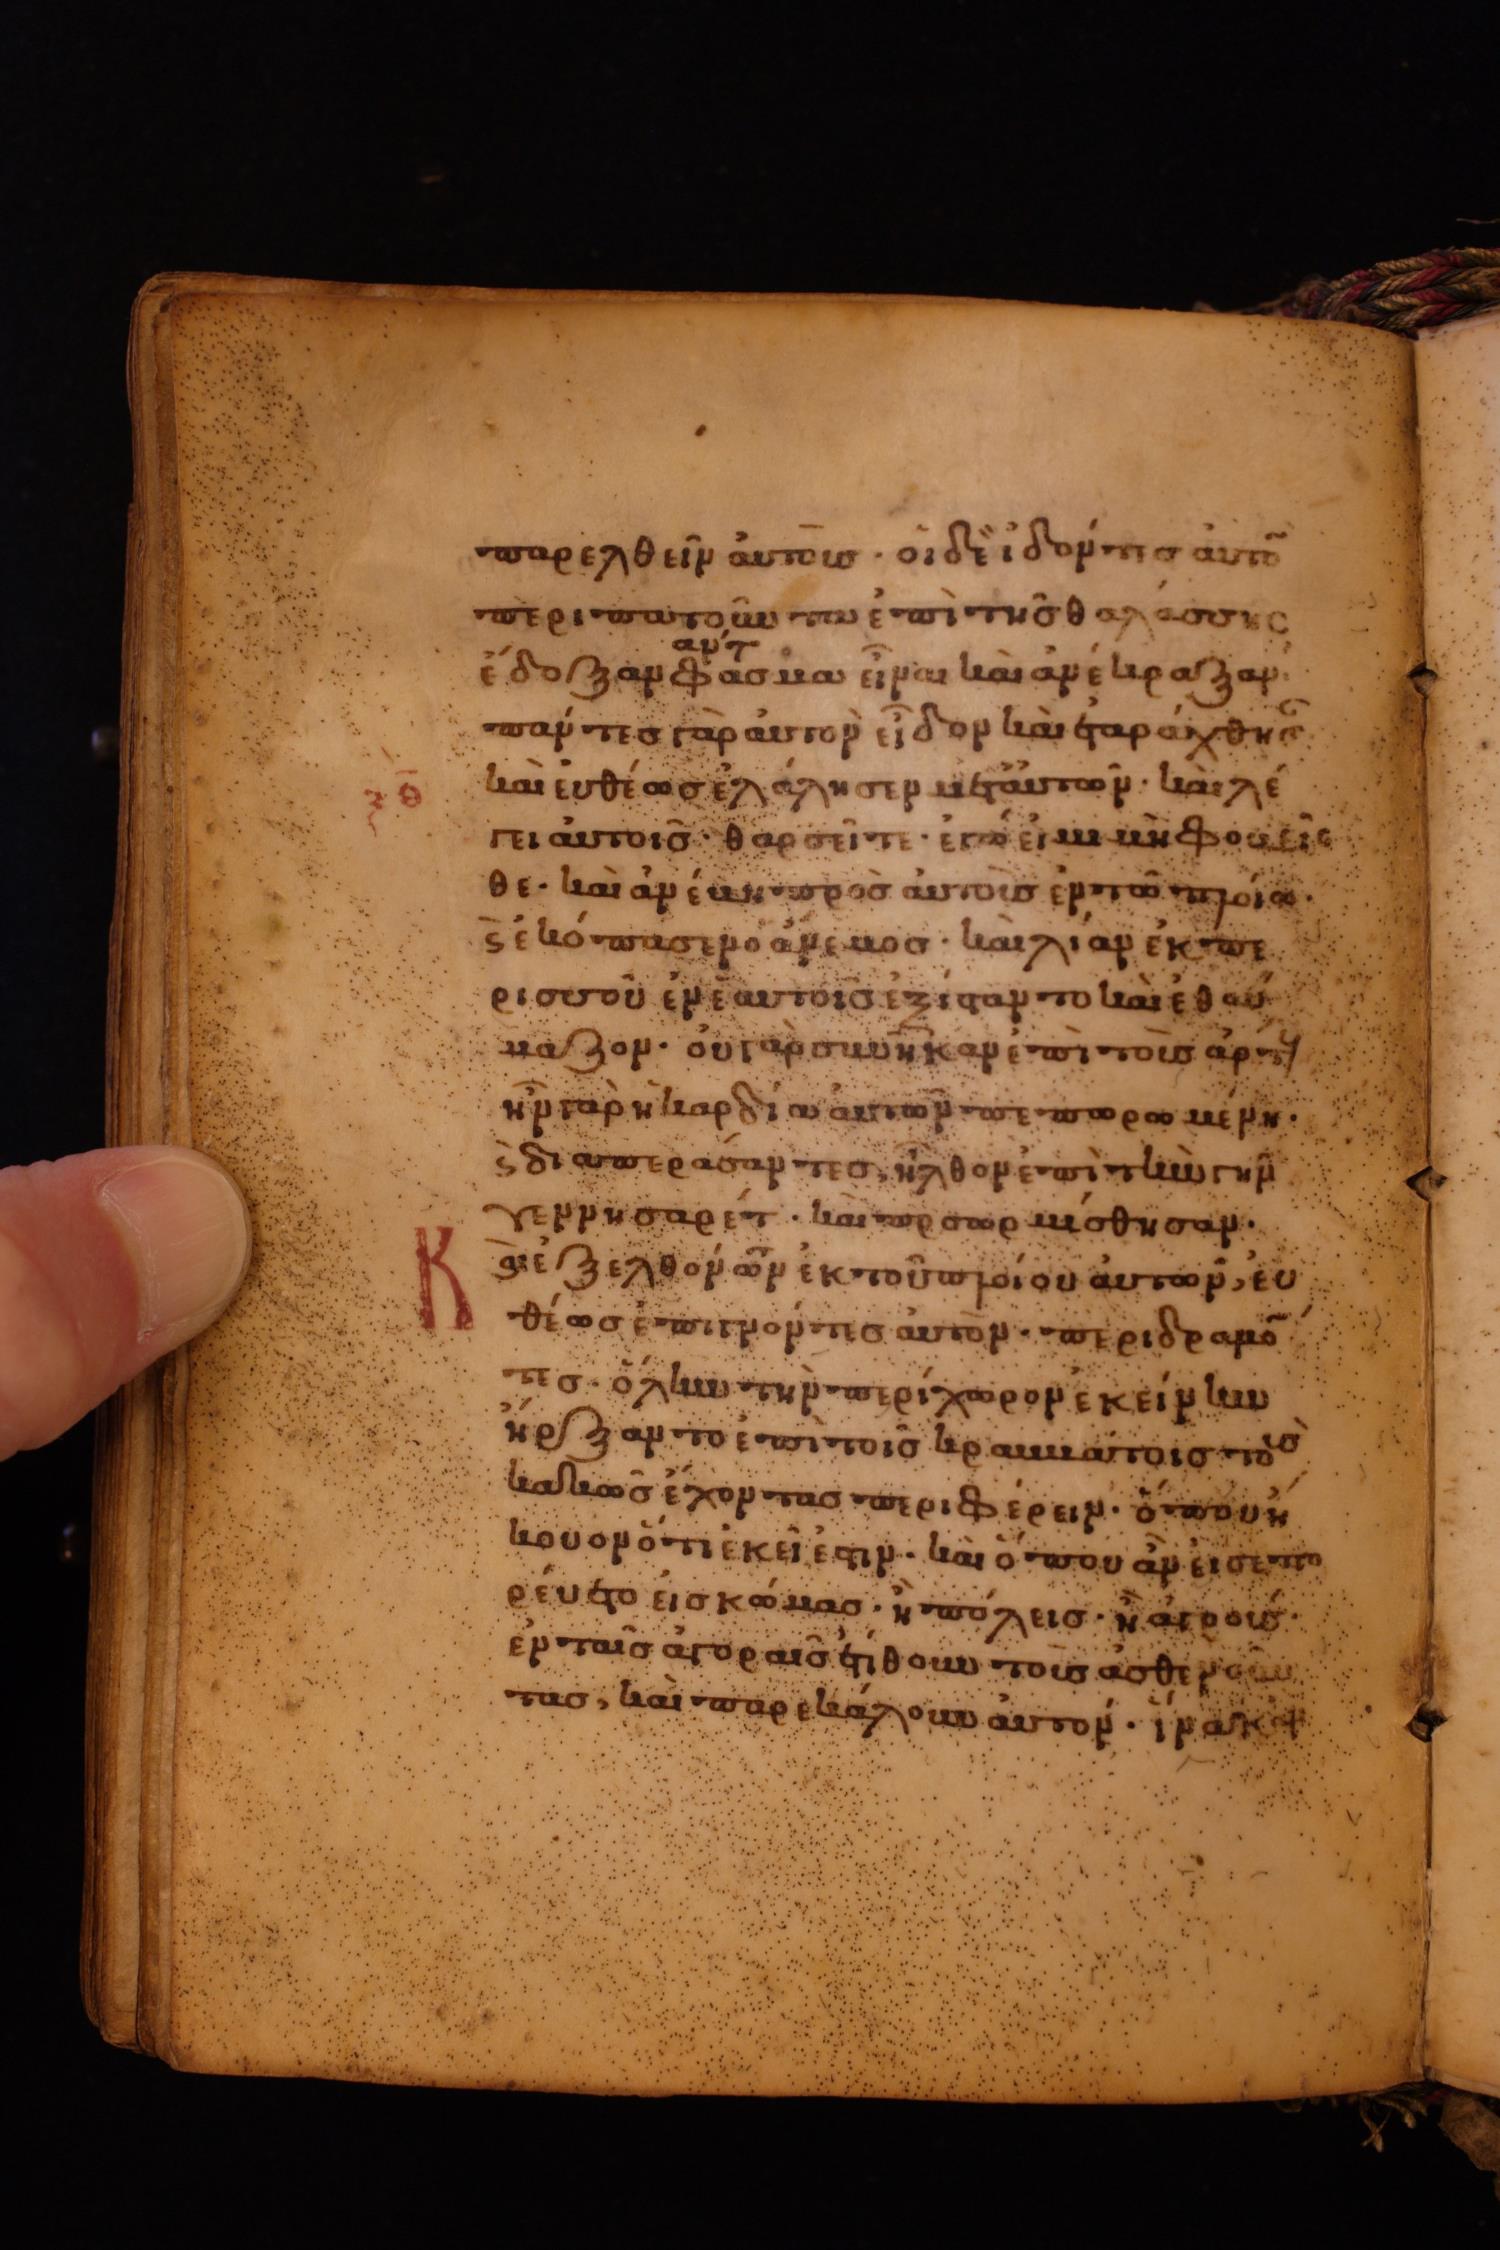 παρελθεῖν ἀυτοὺσ · ὁι δὲ ἰδόντεσ ἀυτὸ̄
περιπατοῦντα ἐπὶ τῆσ θαλάσσησ
ἀυτ
ἔδοξαν φάσμα εἶναι καὶ ἀνέκραξαν·
πάντεσ γὰρ ἀυτὸν εἶδον καὶ ἐταράχθησ
ξθ
καὶ ἐυθέωσ ἐλάλησεν μετ ἀυτῶν · καὶ λέ
γει ἀυτοῖσ · θαρσεῖτε · ἐγώ ἐιμι μὴ φοβεῖσ
θε · καὶ ἀνέβη πρὸσ ἀυτοὺσ ἐν τῶ πλοίω ·
ϛ ἐκόπασεν ὁ ἄνεμοσ · καὶ λίαν ἐκ πε
ρισσοῦ ἐν ἑαυτοῖσ ἐξίσταντο καὶ ἐθαύ
μαζον · ὀυ γὰρ συνῆκαν ἐπὶ τοῖσ ἄρτ
ἦν γὰρ ἡ καρδία ἀυτῶν πεπωρωμένη ·
ϛ διαπεράσαντεσ, ἦλθον ἐπὶ τὴν γῆν
γεννησαρέτ · καὶ προσωρμίσθησαν ·
Καὶ ἐξελθόντων ἐκ τοῦ πλοίου ἀυτῶν, ἐυ
θέωσ ἐπιγνόντεσ ἀυτὸν · περιδραμό̄
τεσ · ὅλην τὴν περίχωρον ἐκείνην
ἤρξαντο ἐπὶ τοῖσ κραββάτοισ τοὺσ
κακῶσ ἔχοντασ περιφέρειν · ὅπου ἤ
κουον ὅτι ἐκεῖ ἐστιν · καὶ ὅπου ἂν ἐισεπο
ρέυετο ἐισ κώμασ · ἢ πόλεισ · ἢ ἀγρούσ ·
ἐν ταῖσ ἀγοραῖσ ἐτίθουν τοὺσ ἀσθενοῦν
τασ, καὶ παρεκάλουν ἀυτόν · ἵνα κἂ̄